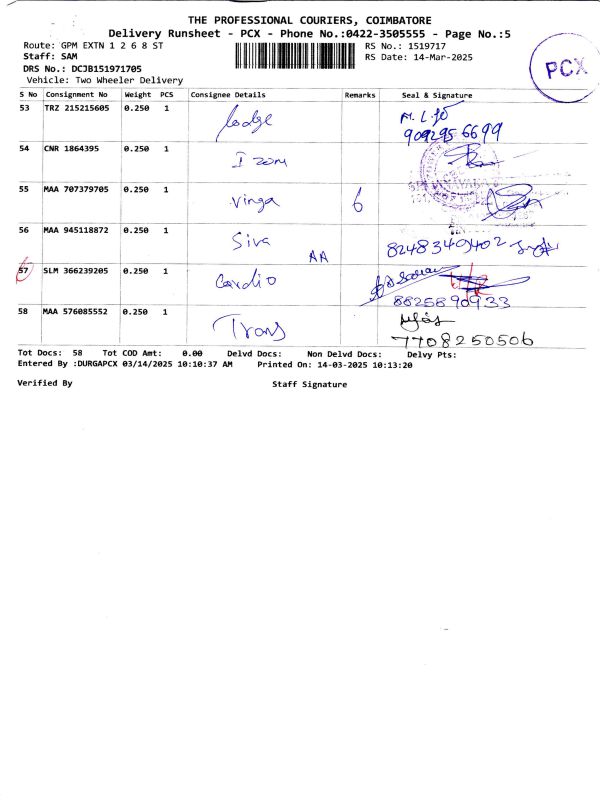 THE PROFESSIONAL COURIERS, COIMBATORE
Delivery Runsheet - PCX - Phone No.:0422-3505555 - Page No.:5
Route: GPM EXTN 1 2 6 8 ST RS No.: 1519717
Staff: SAM RS Date: 14-Mar-2025
DRS No.: DCJB151971705
Vehicle: Two Wheeler Delivery
PCX
S No Consignment No Weight PCS Consignee Details Remarks Seal & Signature
53 TRZ 215215605 0.250 1 Lodge
9092956699
54 CNR 1864395 0.250 1 I zom
55 MAA 707379705 0.250 1 Vinga 6
56 MAA 945118872 0.250 1 Siva AA 8248349402
57 SLM 366239205 0.250 1 Cardio
8825890933
58 MAA 576085552 0.250 1 Trans
7708250506
Tot Docs: 58 Tot COD Amt: 0.00 Delvd Docs: Non Delvd Docs: Delvy Pts:
Entered By :DURGAPCX 03/14/2025 10:10:37 AM Printed On: 14-03-2025 10:13:20
Verified By Staff Signature